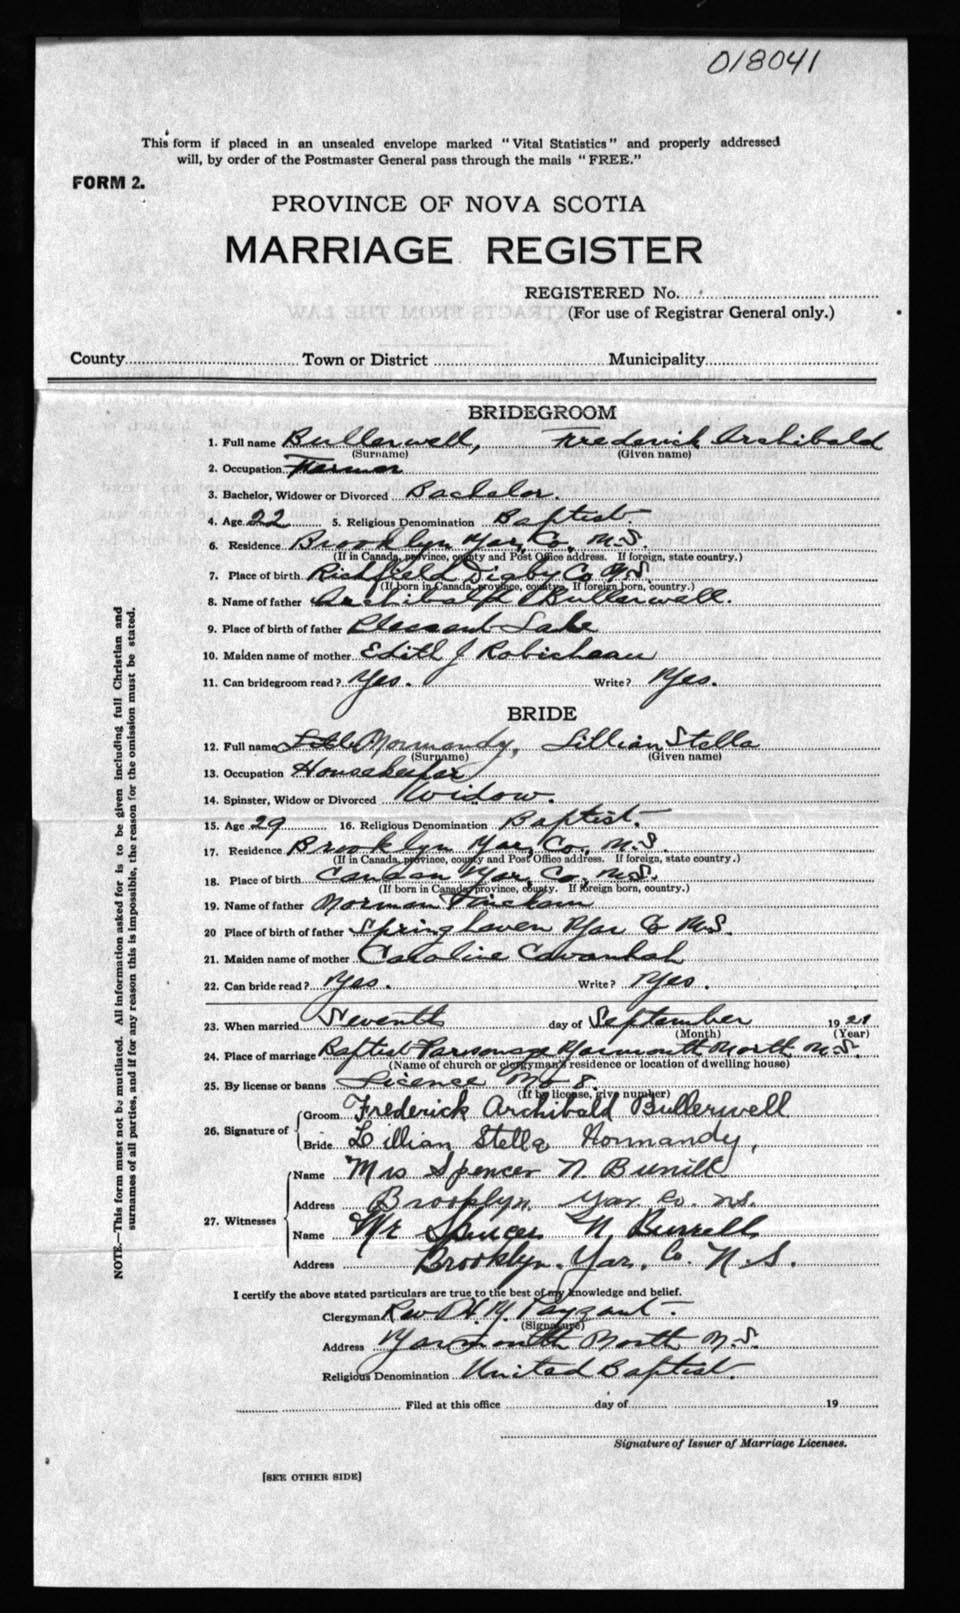 018041
This form if placed in an unsealed envelope marked "Vital Statistics" and properly addressed
will, by order of the Postmaster General pass through the mails "FREE."
FORM 2.
PROVINCE OF NOVA SCOTIA
MARRIAGE REGISTER
REGISTERED No.
(For use of Registrar General only.)
County Town or District Municipality
BRIDEGROOM
1. Full name Bullerwell, Frederick Archibald
(Surname) (Given name)
2. Occupation Farmer
3. Bachelor, Widower or Divorced Bachelor.
4. Age 22 5. Religious Denomination Baptist.
6. Residence Brooklyn Yar. Co. N.S.
(If in Canada, province, county and Post Office address. If foreign, state country.)
7. Place of birth Richfield Digby Co N.S.
(If born in Canada, province, county. If foreign born, country.)
8. Name of father Archibald Bullerwell.
9. Place of birth of father Pleasant Lake
10. Maiden name of mother Edith J Robicheau
11. Can bridegroom read? Yes. Write? Yes.
BRIDE
12. Full name Normandy, Lillian Stella
(Surname) (Given name)
13. Occupation Housekeeper
14. Spinster, Widow or Divorced Widow.
15. Age 29 16. Religious Denomination Baptist.
17. Residence Brooklyn Yar. Co. N.S.
(If in Canada, province, county and Post Office address. If foreign, state country.)
18. Place of birth Yar. Co. N.S.
(If born in Canada, province, county. If foreign born, country.)
19. Name of father Norman
20 Place of birth of father Springhaven Yar Co N.S.
21. Maiden name of mother Caroline Cavanhah
22. Can bride read? Yes. Write? Yes.
23. When married Seventh day of September 19
(Month) (Year)
24. Place of marriage Baptist Parsonage Yarmouth North N.S.
(Name of church or clergyman's residence or location of dwelling house)
25. By license or banns Licence No 8.
(If by license, give number)
26. Signature of Groom Frederick Archibald Bullerwell
Bride Lillian Stella Normandy,
27. Witnesses Name Mrs Spencer N.
Address Brooklyn Yar. Co. N.S.
Name Mr Spencer N. Burrell
Address Brooklyn. Yar. Co. N.S.
I certify the above stated particulars are true to the best of my knowledge and belief.
Clergyman Rev Payzant.
(Signature)
Address Yarmouth North N.S.
Religious Denomination United Baptist.
Filed at this office day of 19
Signature of Issuer of Marriage Licenses.
[SEE OTHER SIDE]
NOTE.—This form must not be mutilated. All information asked for is to be given including full Christian and
surnames of all parties, and if for any reason this is impossible, the reason for the omission must be stated.